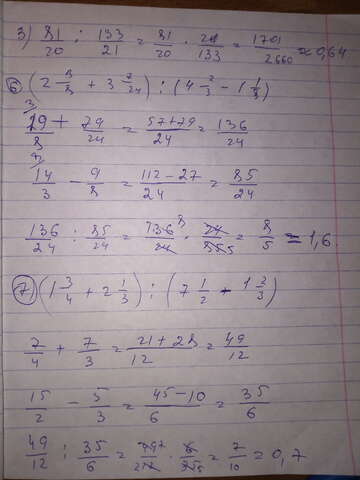 3) 81/20 : 133/21 = 81/20 · 21/133 = 1701/2660 ≈ 0,64
6) (2 3/8 + 3 7/24) : (4 2/3 - 1 1/8)
19/8 + 79/24 = 57+79/24 = 136/24
14/3 - 9/8 = 112-27/24 = 85/24
136/24 : 85/24 = 136/24 · 24/85 = 8/5 = 1,6.
7) (1 3/4 + 2 1/3) : (7 1/2 - 1 2/3)
7/4 + 7/3 = 21+28/12 = 49/12
15/2 - 5/3 = 45-10/6 = 35/6
49/12 : 35/6 = 49/12 · 6/35 = 7/10 = 0,7